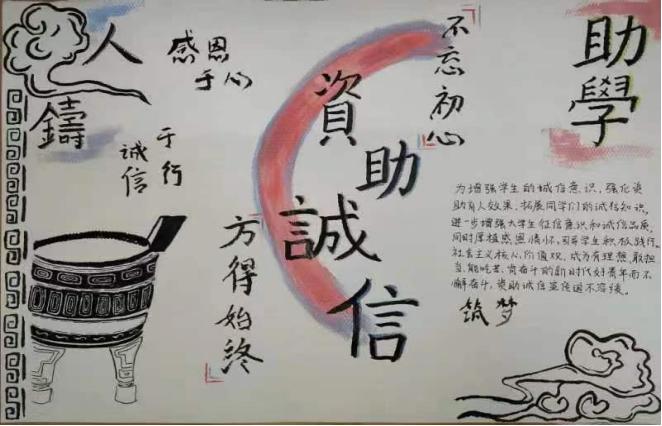 人
鑄
感恩
于心
诚信
于行
資助
誠信
不忘初心
方得始終
助學
为增强学生的诚信意识，强化资
助育人效果，拓展同学们的诚信知识，
进一步增强大学生征信意识和诚信品质，
同时厚植感恩情怀，引导学生积极践行
社会主义核心价值观，成为有理想、敢担
当、能吃苦、肯奋斗的新时代好青年而不
懈奋斗，资助诚信宣传刻不容缓。
筑梦